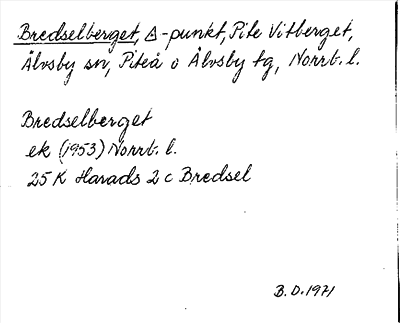 Bredselberget, △-punkt, Pite Vitberget,
Älvsby sn, Piteå o Älvsby tg, Norrb. l.
Bredselberget
ek (1953) Norrb. l.
25 K Harads 2 c Bredsel
B.D. 1971